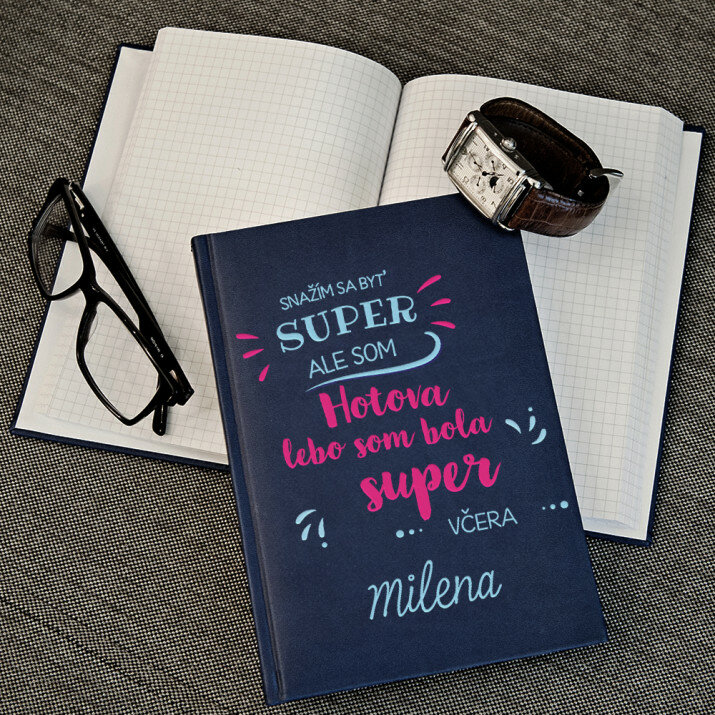 SNAŽÍM SA BYŤ
SUPER
ALE SOM
Hotova
lebo som bola
super
VČERA
milena